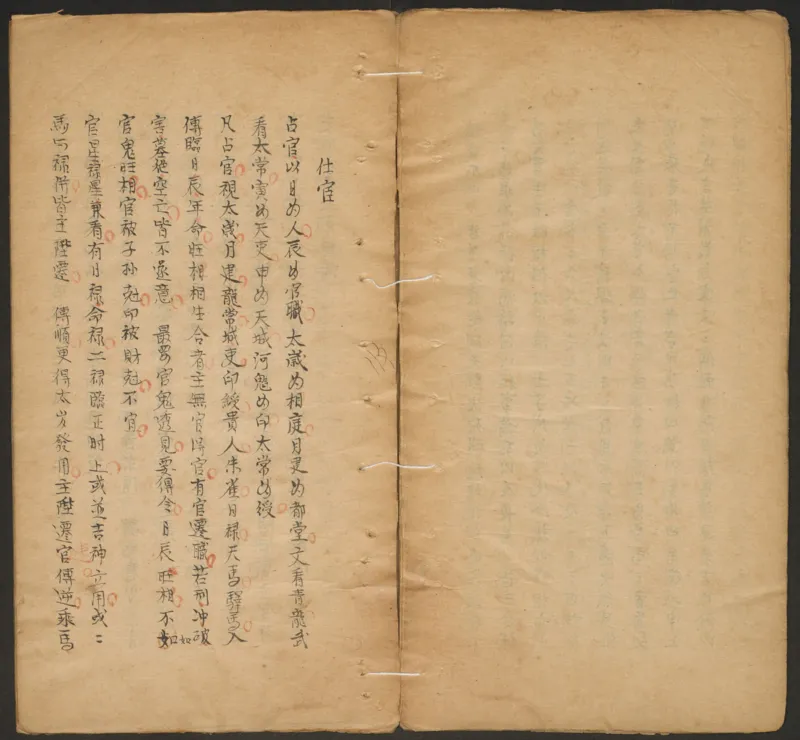 仕宦
占官以日为人辰为官職太歲为相庭月建为都堂文看青龍武
看太常寅为天吏申为天城河魁为印太常为綬
凡占官視太歲月建龍常城吏印綬貴人朱雀日禄天馬驛馬入
傳臨日辰年命旺相相生合者主無官得官有官遷職若刑冲破
害墓空亡皆不遂意 最要官鬼透見要得令日辰旺相不如
官鬼旺相官被子孙尅印被財尅不宜
官星禄兼看有日禄命禄二禄臨正时上或並吉神立用或
馬与禄併皆主陞遷 傳順更得太岁發用主陞遷官傳逆乘馬